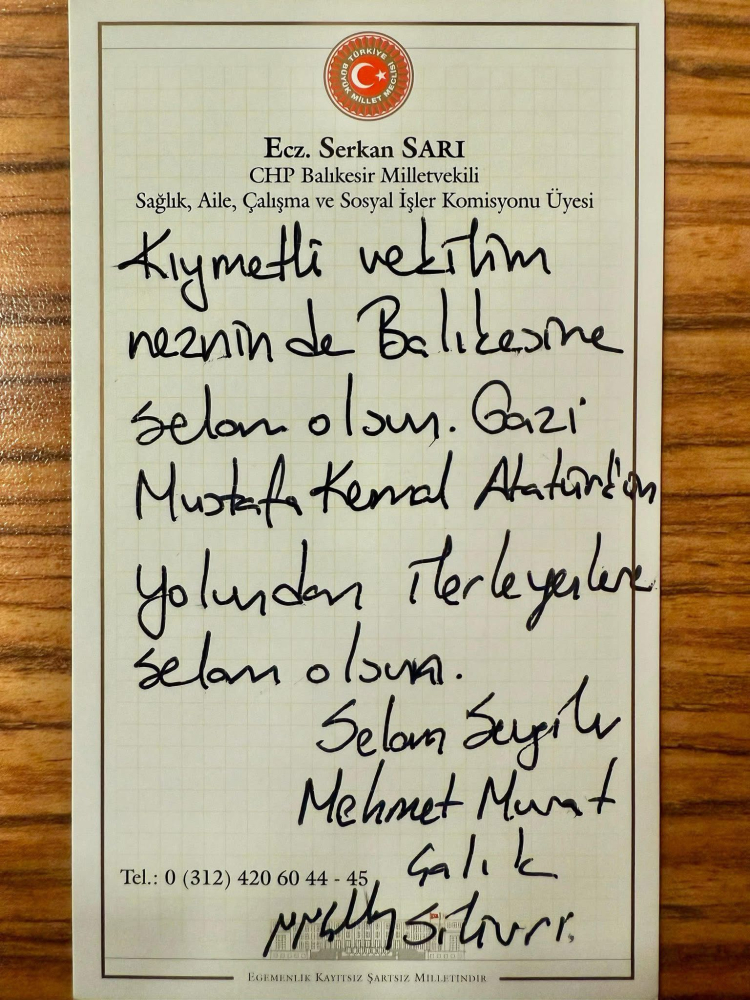 TÜRKİYE
BÜYÜK MİLLET MECLİSİ
Ecz. Serkan SARI
CHP Balıkesir Milletvekili
Sağlık, Aile, Çalışma ve Sosyal İşler Komisyonu Üyesi
Kıymetli vekilim
neznin de Balıkesire
selam olsun. Gazi
Mustafa Kemal Atatürk'ün
yolundan ilerleyenlere
selam olsun.
Selam Sevgiler
Mehmet Murat
Çalık
Silivri.
Tel.: 0 (312) 420 60 44 - 45
EGEMENLİK KAYITSIZ ŞARTSIZ MİLLETİNDİR